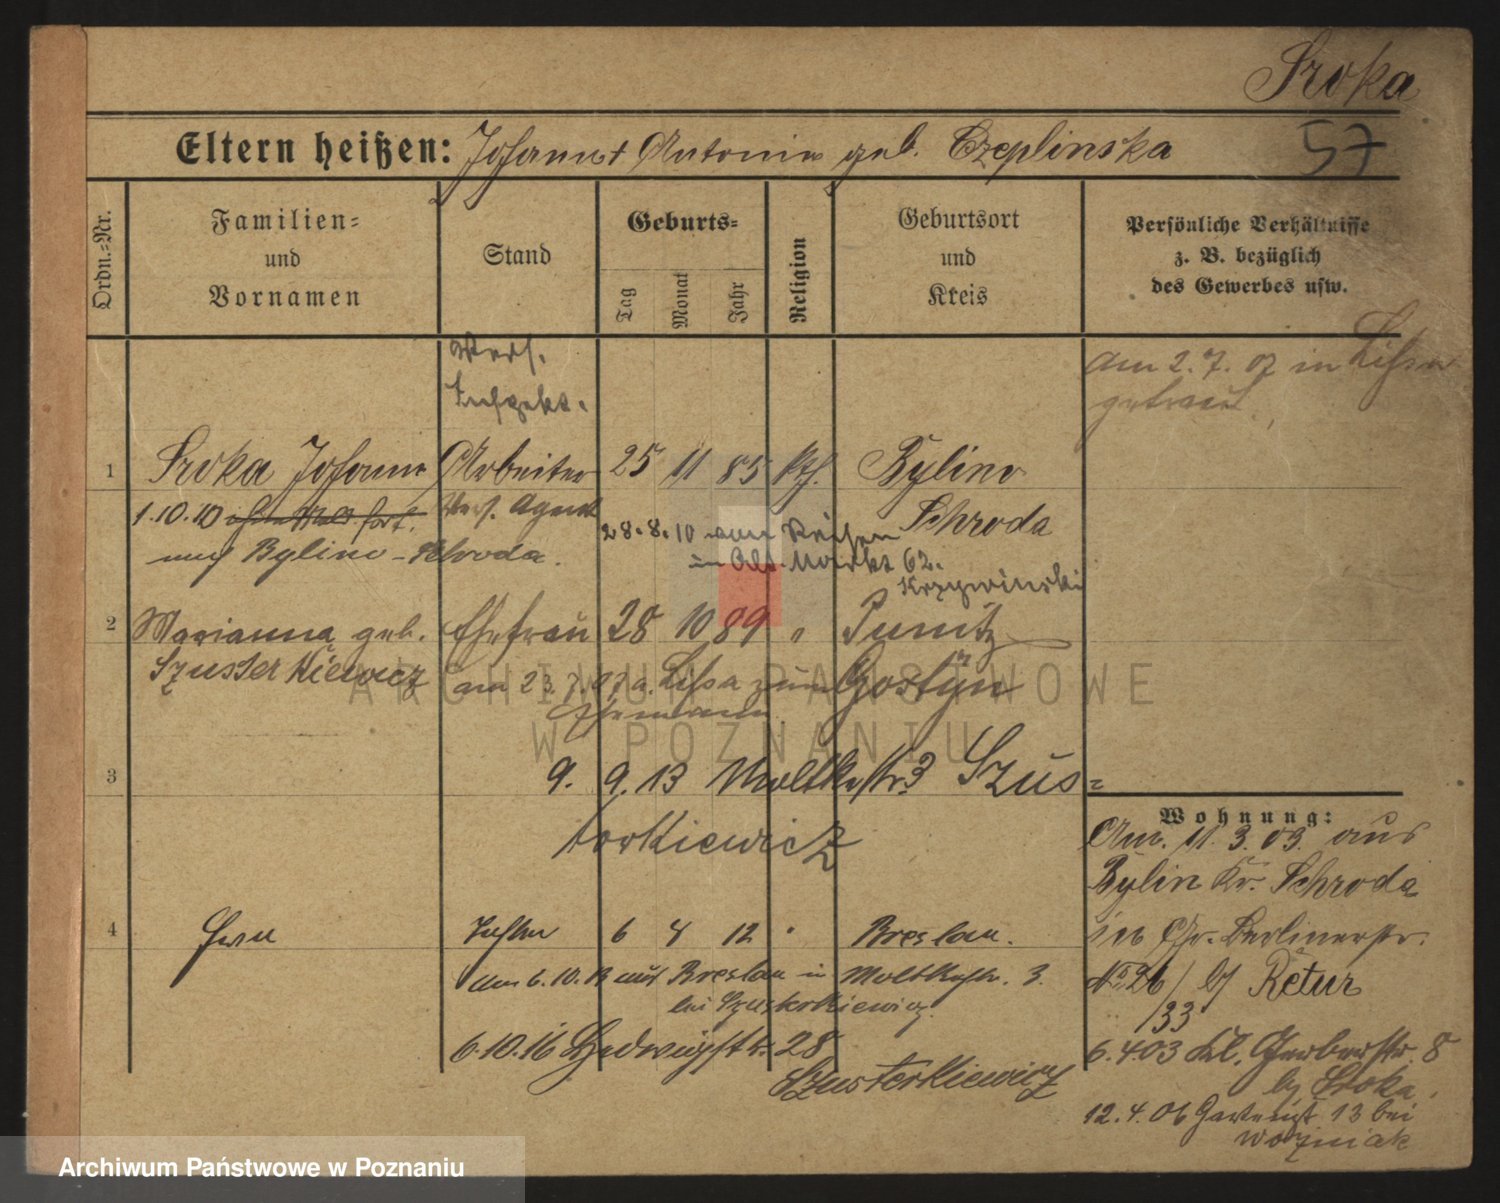 Sroka
57
Eltern heißen: Johann + Antonie geb. Czeplinska
Ordn.-Nr.
Familien-
und
Vornamen
Stand
Geburts-
Tag
Monat
Jahr
Religion
Geburtsort
und
Kreis
Persönliche Verhältnisse
z. B. bezüglich
des Gewerbes usw.
Vers.
Inspekt.
am 2.7.07 in Lissa
getraut.
1 Sroka Johann Arbeiter 25 11 85 kth. Bylino
Vers. Agent
Schroda
1.10.10 ohne Meld. fort.
nach Bylino - Schroda.
28.8.10 von Reisen
in Alt. Markt 62.
Krzywinski
2 Marianna geb. Ehefrau 28 10 89 " Punitz
Szusterkiewicz
Gostyn
am 23.7.07 a. Lissa zum
Ehemann
3
9. 9. 13 Moltkestr. 3 Szus-
terkiewicz
4 Tochter 6 4 12 " Breslau.
am 6.10.13 aus Breslau in Moltkestr. 3.
bei Szusterkiewicz.
6.10.16 Hedwigstr. 28
Szusterkiewicz
Wohnung:
An. 11.3.03. aus
Bylin Kr. Schroda
in Gr. Berlinerstr.
No 26 / bj Retur
/33
6.4.03 Kl. Gerberstr. 8
bj Sroka.
12.4.06 Gartenst 13 bei
Wozniak
ARCHIWUM PAŃSTWOWE
W POZNANIU
Archiwum Państwowe w Poznaniu